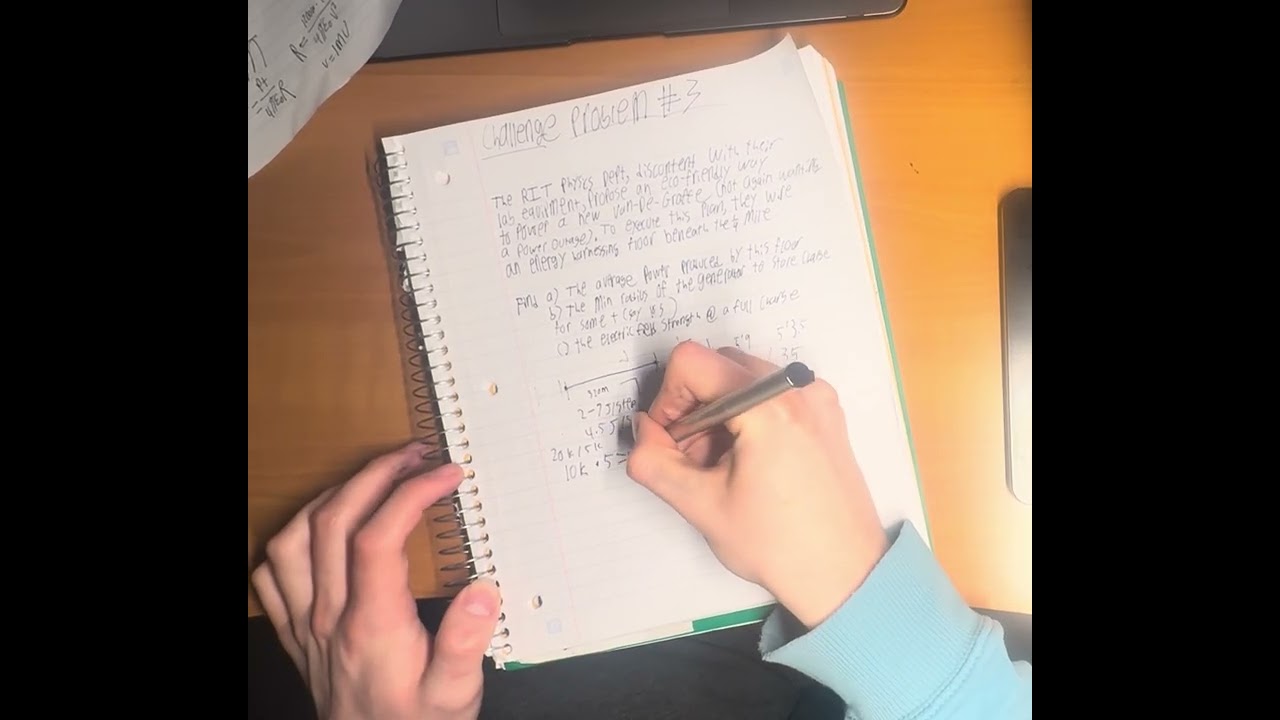 R=
4πε₀V
V=1MV
4πε₀R
Challenge Problem #3
The RIT Physics Dept, discontent with their
lab equipment, propose an eco-friendly way
to power a new Van-De-Graffe (not again wanting
a power outage). To execute this plan, they wire
an energy harnessing floor beneath the 1/4 mile
Find a) The average power produced by this floor
b) The min radius of the generator to store charge
for some t (say 8s)
c) the electric field strength @ a full charge
5'9 5'3.5
35
320m
2-7J/ste
4.5J/s
20k/5k
10k • 5=